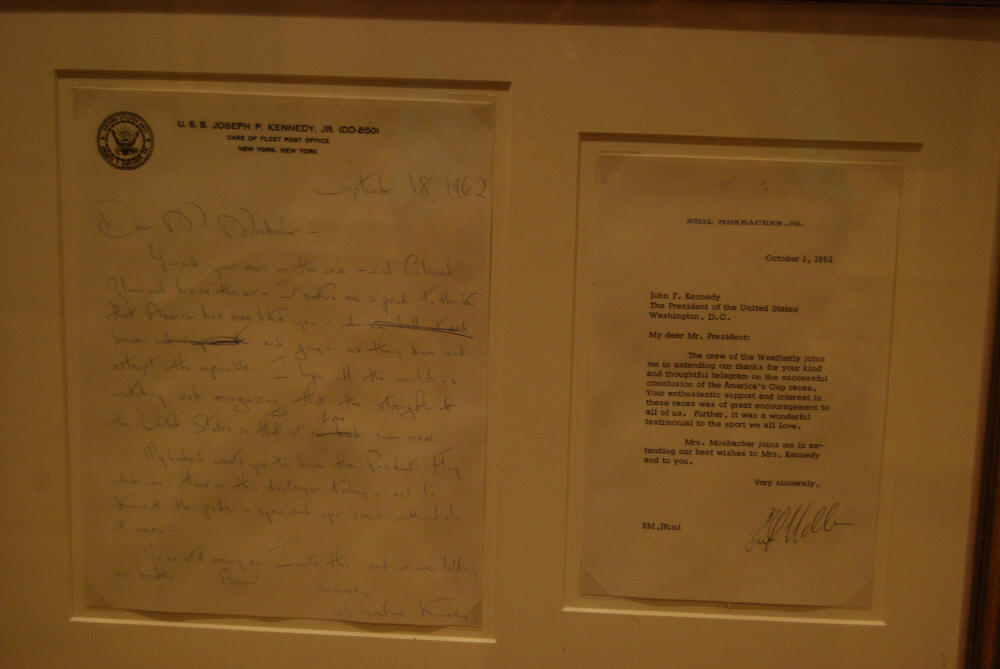 U. S. S. JOSEPH P. KENNEDY, JR. (DD-850)
CARE OF FLEET POST OFFICE
NEW YORK, NEW YORK
September 18, 1962
Dear Mr. Mosbacher -
You and your men on the sea - and Colonel
Glenn and his in the air - It makes me so proud to think
that America has men like you -
have and - as they have and
attempt the impossible. I hope all the world is
watching and recognizing that the strength of
the United States is that it has such men.
My husband wants you to have the President's Flag
which was on this destroyer today - and to
know of the pride in you and your crew with which
it
You are still racing as I write this and we are holding
our breaths. Sincerely
Jacqueline Kennedy
EMIL MOSBACHER, JR.
October 1, 1962
John F. Kennedy
The President of the United States
Washington, D.C.
My dear Mr. President:
The crew of the Weatherly joins
me in extending our thanks for your kind
and thoughtful telegram on the successful
conclusion of the America's Cup races.
Your enthusiastic support and interest in
these races was of great encouragement to
all of us. Further, it was a wonderful
testimonial to the sport we all love.
Mrs. Mosbacher joins me in ex-
tending our best wishes to Mrs. Kennedy
and to you.
Very sincerely,
EM,JR:ml